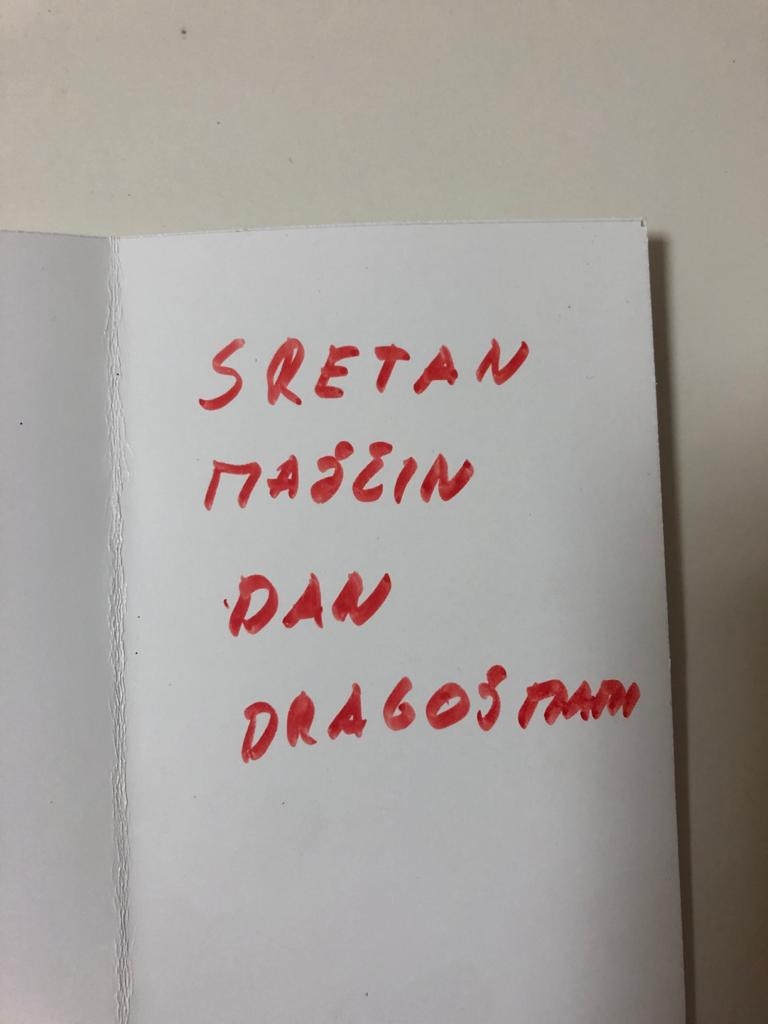 SRETAN
MAŠČIN
DAN
DRAGOJ MAMI